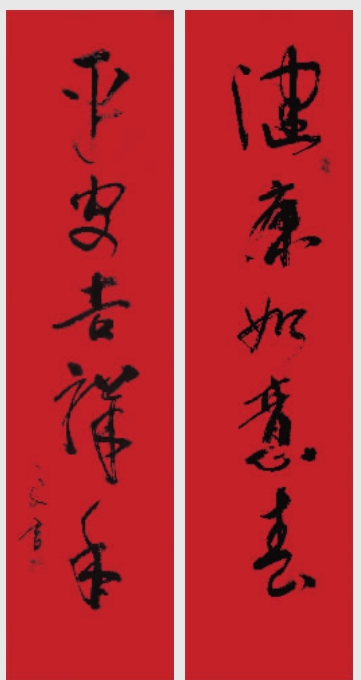 健康如意春
平安吉祥年